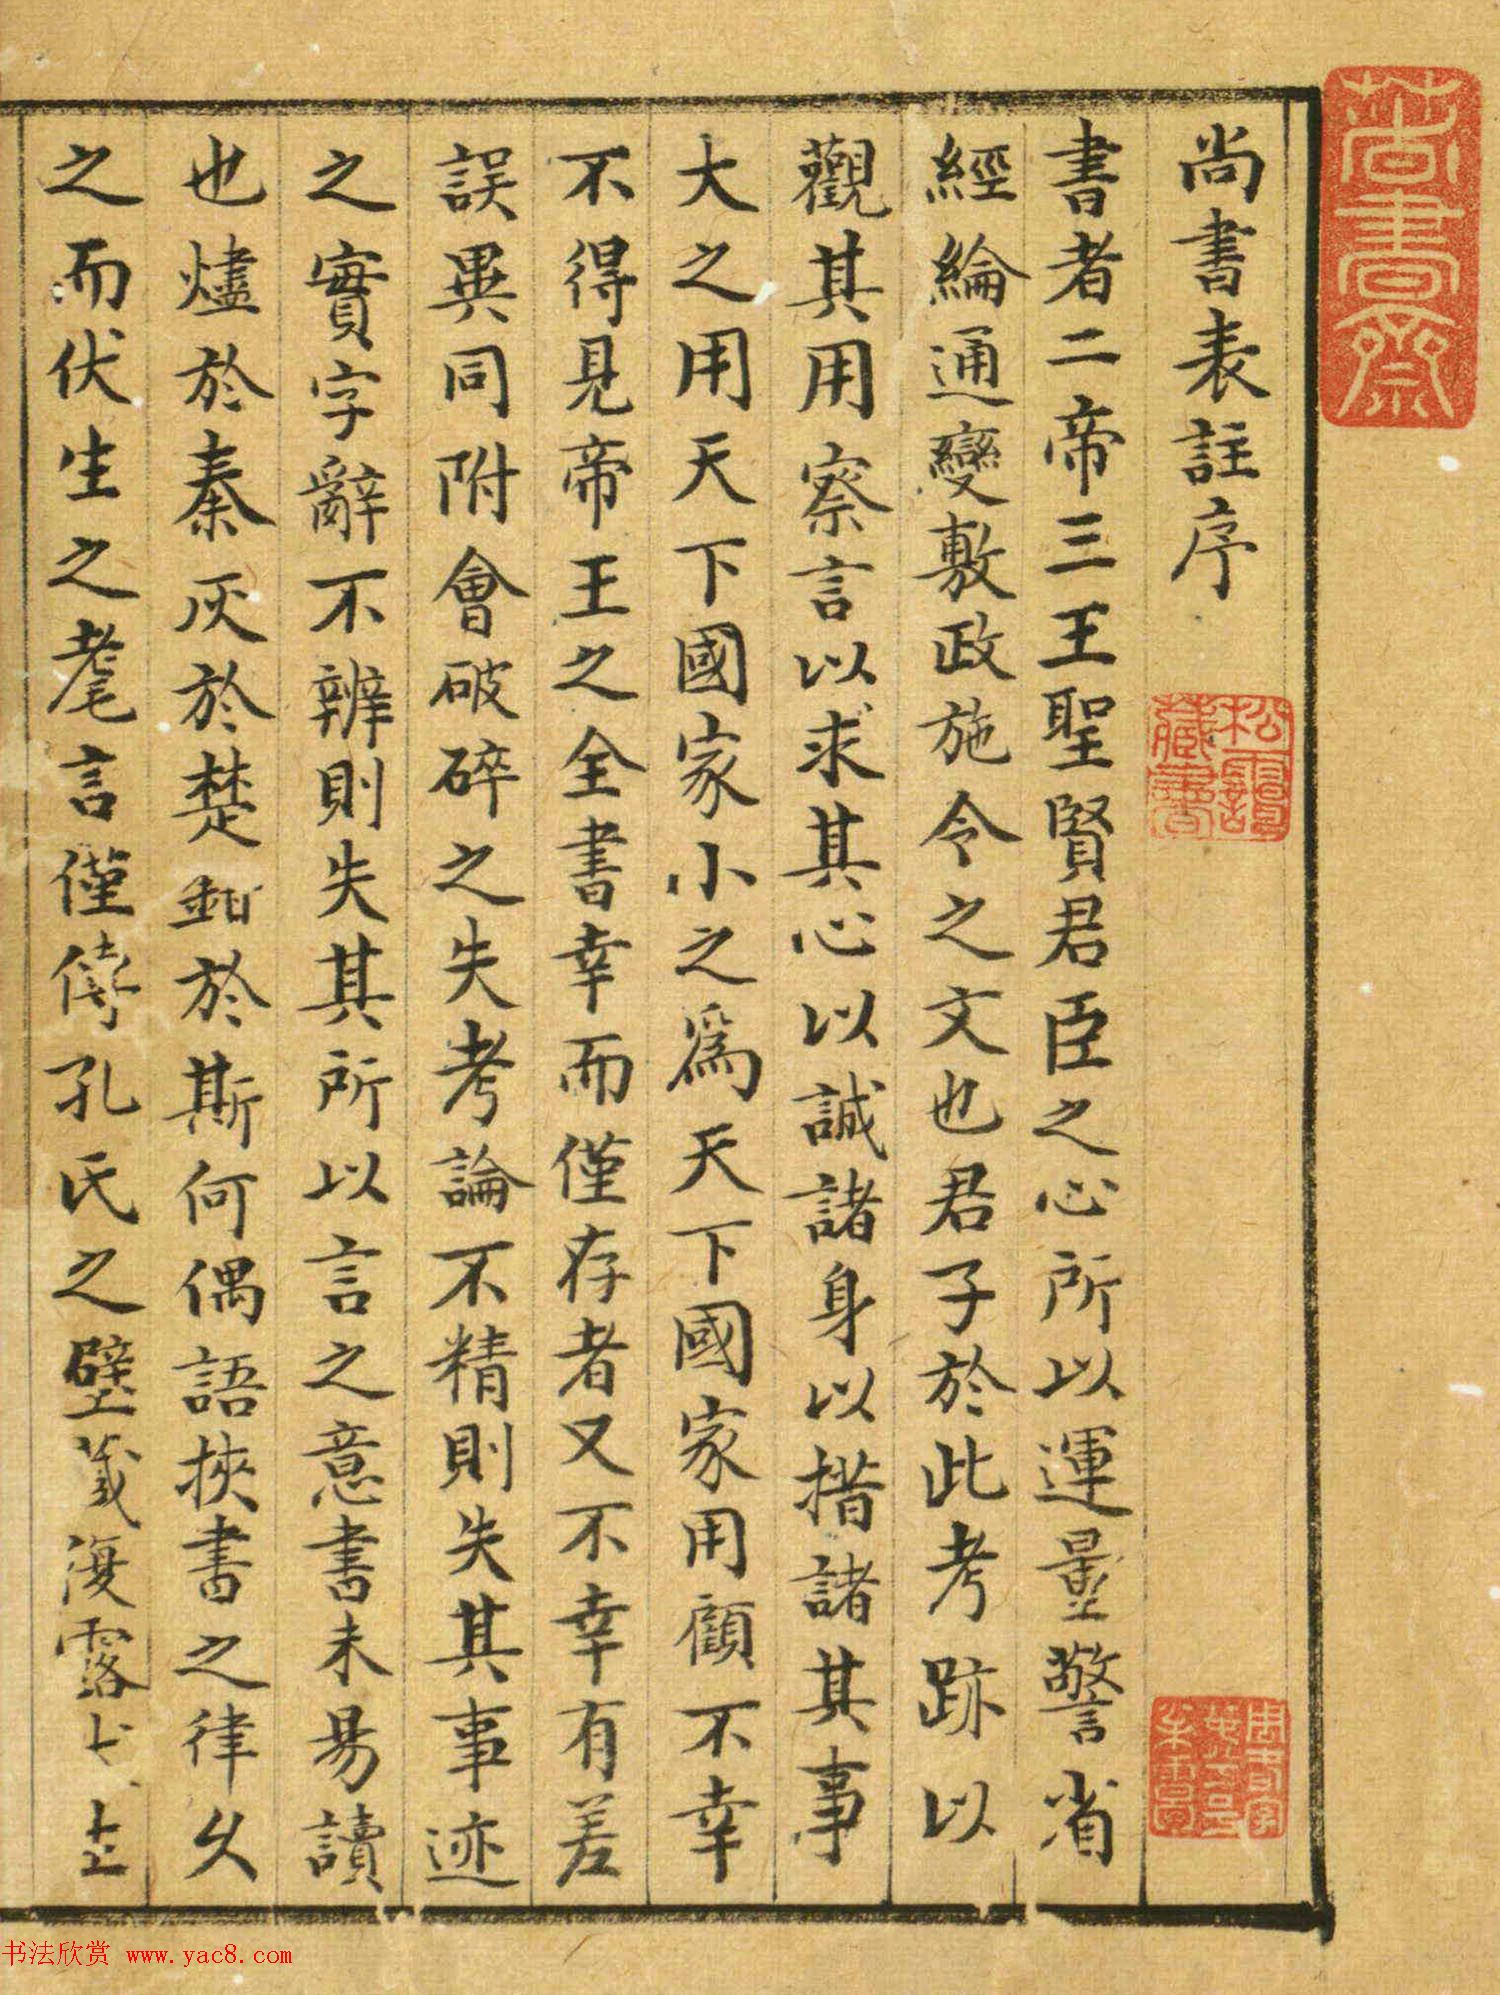 尚書表註序
書者二帝三王聖賢君臣之心所以運量警省
經綸通變敷政施令之文也君子於此考跡以
觀其用察言以求其心以誠諸身以措諸其事
大之用天下國家小之為天下國家用顧不幸
不得見帝王之全書幸而僅存者又不幸有差
誤異同附會破碎之失考論不精則失其事迹
之實字辭不辨則失其所以言之意書未易讀
也燼於秦灰於楚鉗於斯何偶語挾書之律久
之而伏生之耄言僅傳孔氏之壁藏復露七上
尚書齋
松霞
藏書
书法欣赏 www.yac8.com